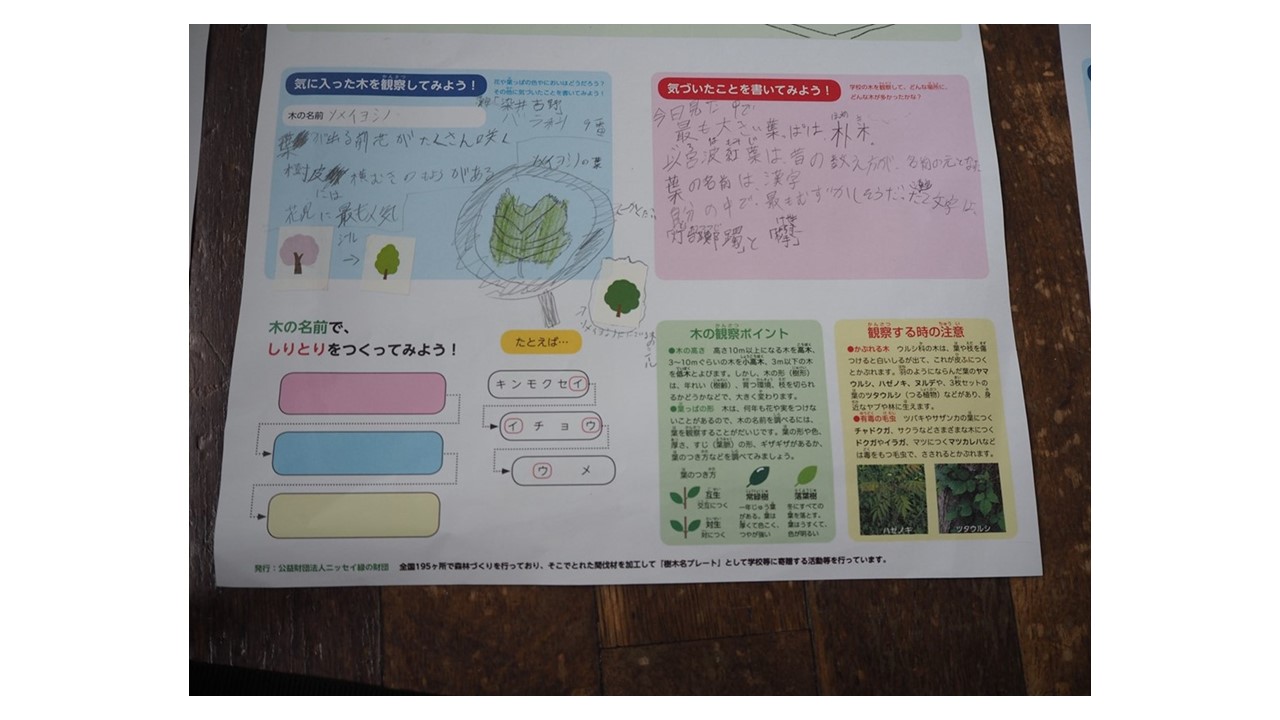 気に入った木を観察してみよう！
花や葉っぱの色やにおいはどうだろう？
その他に気づいたことを書いてみよう！
木の名前 ソメイヨシノ
染井吉野
バラ
葉が出る前花がたくさん咲く
樹皮には横むきのもようがある
花見に最も人気
ソメイヨシノの葉
気づいたことを書いてみよう！
学校の木を観察して、どんな場所に、
どんな木が多かったかな？
今日見た中で
最も大きい葉っぱは、朴木。
以呂波紅葉は、昔の数え方が、名前の元となった
葉の名前は、漢字
自分の中で、最もむずかしそうだった文字は、
躑躅」と「欅」
木の名前で、
しりとりをつくってみよう！
たとえば…
キンモクセイ
イチョウ
ウメ
木の観察ポイント
●木の高さ 高さ10m以上になる木を高木、
3〜10mぐらいの木を小高木、3m以下の木
を低木とよびます。しかし、木の形（樹形）
は、年れい（樹齢）、育つ環境、枝を切られ
るかどうかなどで、大きく変わります。
●葉っぱの形 木は、何年も花や実をつけな
いことがあるので、木の名前を調べるには、
葉を観察することがだいじです。葉の形や色、
厚さ、すじ（葉脈）の形、ギザギザがあるか、
葉のつき方などを調べてみましょう。
葉のつき方
互生
交互につく
対生
対につく
常緑樹
一年じゅう葉
がある、葉は
厚くて色こく、
つやが強い
落葉樹
冬にすべての
葉を落とす。
葉はうすくて、
色が明るい
観察する時の注意
●かぶれる木 ウルシ科の木は、葉や枝を傷
つけると白いしるが出て、これが皮ふにつく
とかぶれます。羽のようにならんだ葉のヤマ
ウルシ、ハゼノキ、ヌルデや、3枚セットの
葉のツタウルシ（つる植物）などがあり、身
近なヤブや林に生えます。
●有毒の毛虫 ツバキやサザンカの葉につく
チャドクガ、サクラなどさまざまな木につく
ドクガやイラガ、マツにつくマツカレハなど
は毒をもつ毛虫で、さされるとかぶれます。
ハゼノキ
ツタウルシ
発行：公益財団法人ニッセイ緑の財団 全国195ヶ所で森林づくりを行っており、そこでとれた間伐材を加工して「樹木名プレート」として学校等に寄贈する活動等を行っています。